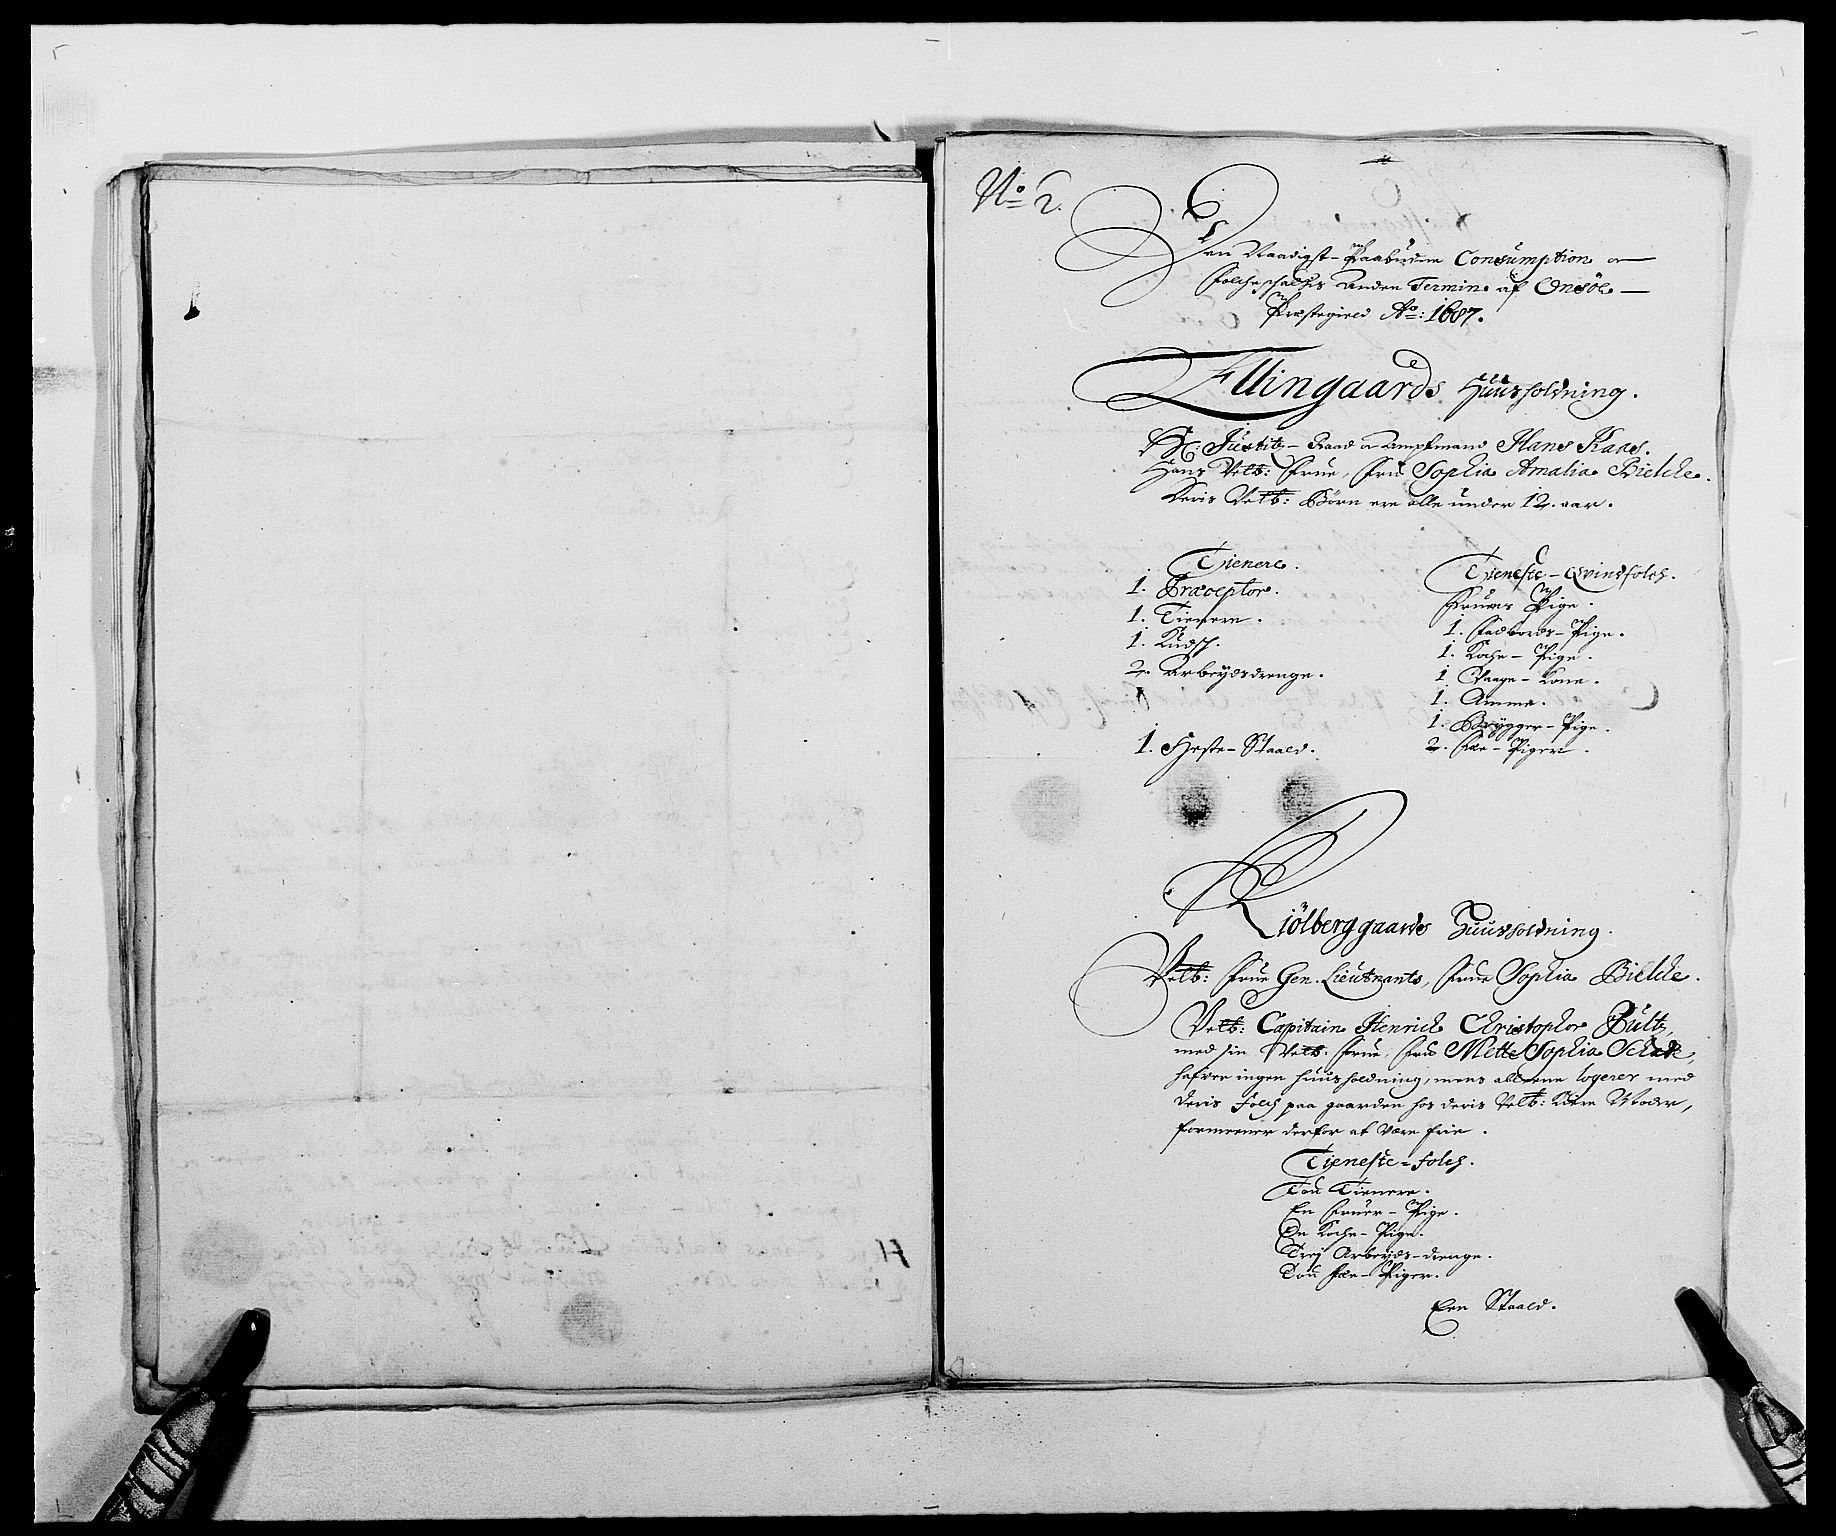 No 2.
Den Naadigst-Paabudne Consumption o
Folcheschatts Anden Termin af Onsöe
Præstegield Ao: 1687.
Ellingaards Huusholdning.
H: Justitz-Raad o Amptmand Hans Kaas.
Hans Velb: Frue, Fru Sophia Amalia Bielche.
Deris Velb: Börn ere alle under 12. aar.
Tienere.
1. Præceptor.
1. Tienere.
1. Kudsch.
2. Arbeydsdrenge.
1. Heste-Staald.
Tieneste-Qvindfolch.
Fruens Pige.
1. Fadbords-Pige.
1. Koche-Pige.
1 Vaage-Kone.
1. Amme.
1. Brygger-Pige.
2. Fæ-Piger.
Kiölberggaards Huusholdning.
Velb: Frue Gen. Lieutnants, Frue Sophia Bielche.
Velb: Capitain Henrich Christopher Bültz,
med sin Velb: Frue, Fru Mette Sophia Schade,
hafver ingen huusholdning, mens alleene logerer med
deris Folch paa gaarden hos deris Velb: Kiere Moder,
formeener derfor at være frie.
Tieneste-folch.
Tou Tienere.
En Fruer-Pige.
En Koche-Pige.
Trej Arbeyds-drenge.
Tou Fæ-Piger.
Een Staald.